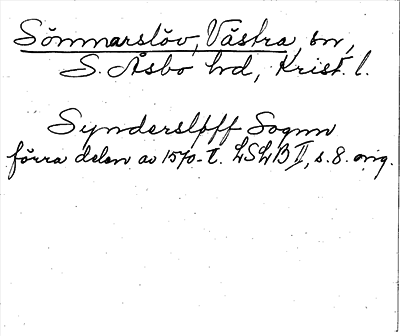 Sömmarslöv, Västra, sn,
S. Åsbo hd, Krist. l.
Synderslöff Sognn
förra delen av 1570-t. LSLB II, s. 8. orig.